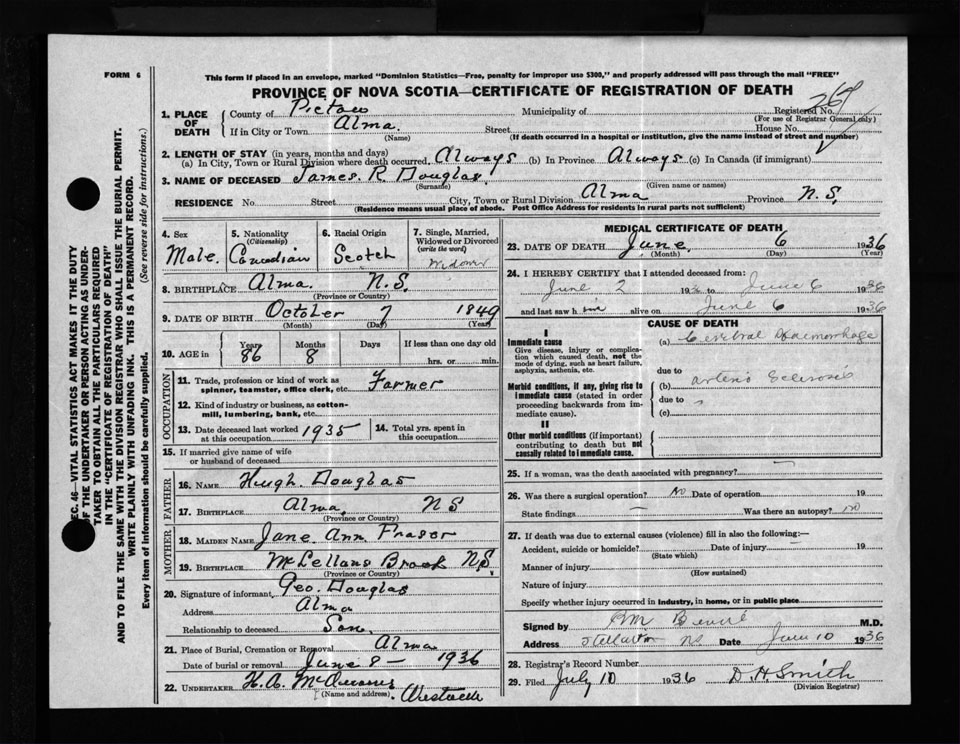 FORM 6
This form if placed in an envelope, marked "Dominion Statistics—Free, penalty for improper use $300," and properly addressed will pass through the mail "FREE"
PROVINCE OF NOVA SCOTIA—CERTIFICATE OF REGISTRATION OF DEATH
1. PLACE OF DEATH
County of Pictou Municipality of Registered No. 267
(For use of Registrar General only)
If in City or Town Alma. Street House No.
(Name) (If death occurred in a hospital or institution, give the name instead of street and number)
2. LENGTH OF STAY (in years, months and days)
(a) In City, Town or Rural Division where death occurred. Always (b) In Province Always (c) In Canada (if immigrant)
3. NAME OF DECEASED James. R. Douglas.
(Surname) (Given name or names)
RESIDENCE No. Street City, Town or Rural Division Alma Province N.S.
(Residence means usual place of abode. Post Office Address for residents in rural parts not sufficient)
4. Sex Male.
5. Nationality (Citizenship) Canadian
6. Racial Origin Scotch
7. Single, Married, Widowed or Divorced (write the word) Widower
8. BIRTHPLACE Alma. N.S.
(Province or Country)
9. DATE OF BIRTH October 7 1849
(Month) (Day) (Year)
10. AGE in Years 86 Months 8 Days If less than one day old
hrs. or min.
OCCUPATION
11. Trade, profession or kind of work as spinner, teamster, office clerk, etc. Farmer
12. Kind of industry or business, as cotton-mill, lumbering, bank, etc.
13. Date deceased last worked at this occupation 1935
14. Total yrs. spent in this occupation
15. If married give name of wife or husband of deceased
FATHER
16. NAME Hugh Douglas
17. BIRTHPLACE Alma, NS
(Province or Country)
MOTHER
18. MAIDEN NAME Jane Ann Fraser
19. BIRTHPLACE McLellans Brook NS.
(Province or Country)
20. Signature of informant Geo. Douglas
Address Alma
Relationship to deceased Son.
21. Place of Burial, Cremation or Removal Alma
Date of burial or removal June 8 — 1936
22. UNDERTAKER H.A.
(Name and address)
MEDICAL CERTIFICATE OF DEATH
23. DATE OF DEATH June 6 1936
(Month) (Day) (Year)
24. I HEREBY CERTIFY that I attended deceased from:
June 2 1936 to June 6 1936
and last saw h im alive on June 6 1936
CAUSE OF DEATH
I
Immediate cause
Give disease, injury or complication which caused death, not the mode of dying, such as heart failure, asphyxia, asthenia, etc.
(a) Cerebral Haemorrhage
due to
Morbid conditions, if any, giving rise to immediate cause (stated in order proceeding backwards from immediate cause).
(b) arterio Sclerosis
due to
(c)
II
Other morbid conditions (if important) contributing to death but not causally related to immediate cause.
25. If a woman, was the death associated with pregnancy?
26. Was there a surgical operation? No Date of operation 19
State findings — Was there an autopsy? no
27. If death was due to external causes (violence) fill in also the following:—
Accident, suicide or homicide? Date of injury 19
(State which)
Manner of injury
(How sustained)
Nature of injury
Specify whether injury occurred in industry, in home, or in public place
Signed by M.D.
Address Stellarton NS Date June 10 1936
28. Registrar's Record Number
29. Filed July 10 1936 D. H. Smith
(Division Registrar)
SEC. 46—VITAL STATISTICS ACT MAKES IT THE DUTY
OF THE UNDERTAKER OR PERSON ACTING AS UNDER-
TAKER TO OBTAIN ALL THE PARTICULARS REQUIRED
IN THE "CERTIFICATE OF REGISTRATION OF DEATH"
AND TO FILE THE SAME WITH THE DIVISION REGISTRAR WHO SHALL ISSUE THE BURIAL PERMIT.
WRITE PLAINLY WITH UNFADING INK. THIS IS A PERMANENT RECORD.
Every item of information should be carefully supplied. (See reverse side for instructions.)